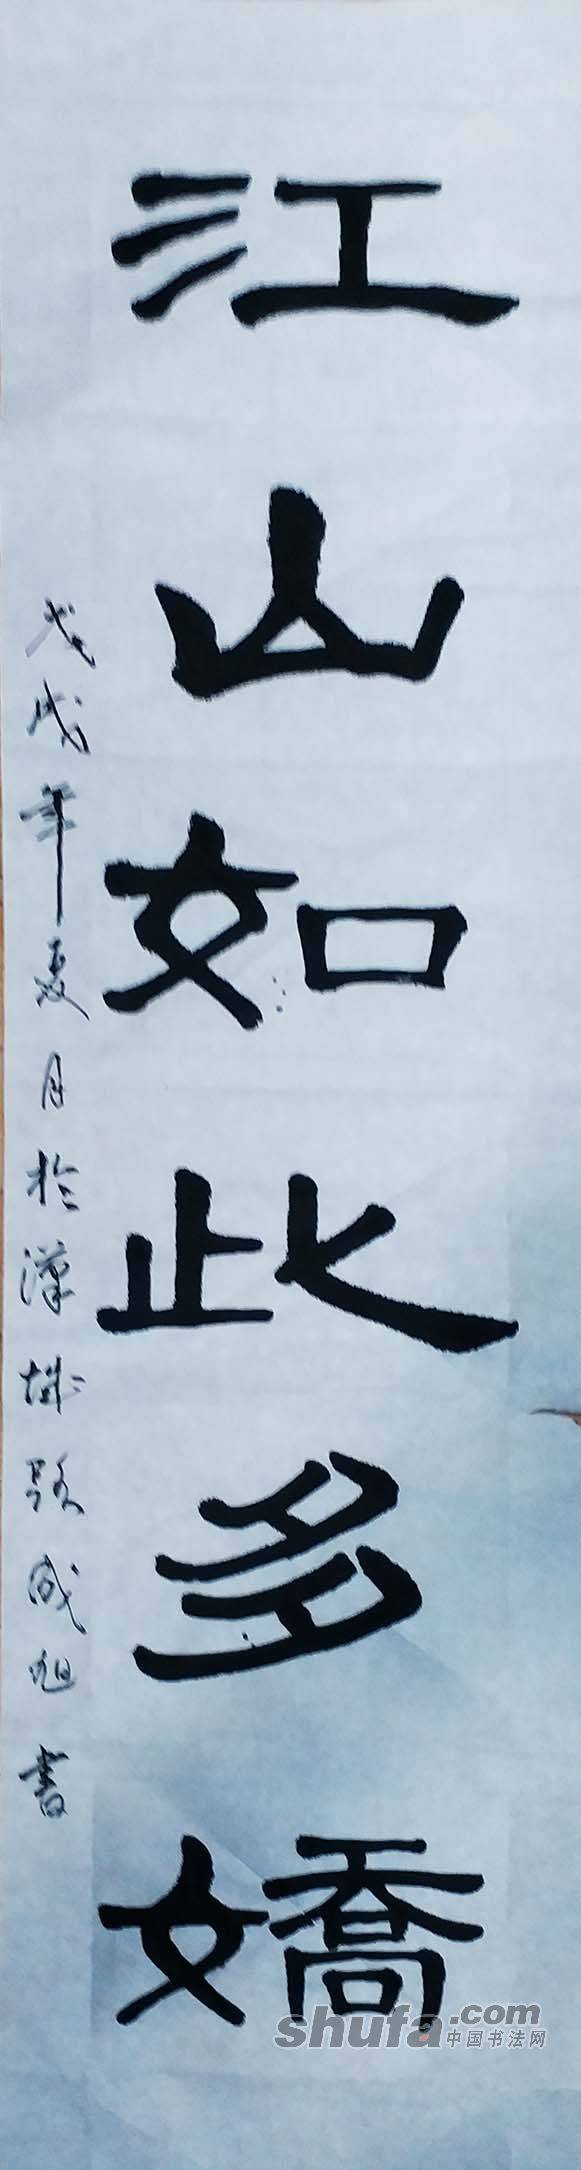 江山如此多嬌
戊戌年夏月於漢城路成旭書
shufa.com
中国书法网